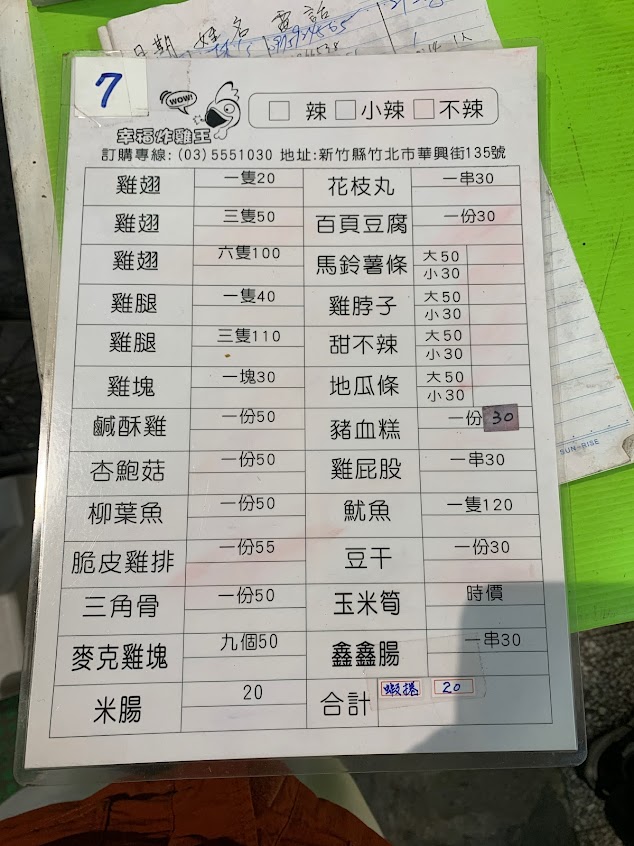 日期 姓名 電話
7
WOW!
幸福炸雞王
辣 小辣 不辣
訂購專線: (03) 5551030 地址:新竹縣竹北市華興街135號
雞翅 一隻20 花枝丸 一串30
雞翅 三隻50 百頁豆腐 一份30
雞翅 六隻100 馬鈴薯條 大50 小30
雞腿 一隻40 雞脖子 大50 小30
雞腿 三隻110 甜不辣 大50 小30
雞塊 一塊30 地瓜條 大50 小30
鹹酥雞 一份50 豬血糕 一份30
杏鮑菇 一份50 雞屁股 一串30
柳葉魚 一份50 魷魚 一隻120
脆皮雞排 一份55 豆干 一份30
三角骨 一份50 玉米筍 時價
麥克雞塊 九個50 鑫鑫腸 一串30
米腸 20 合計 蝦捲 20
SUN-RISE